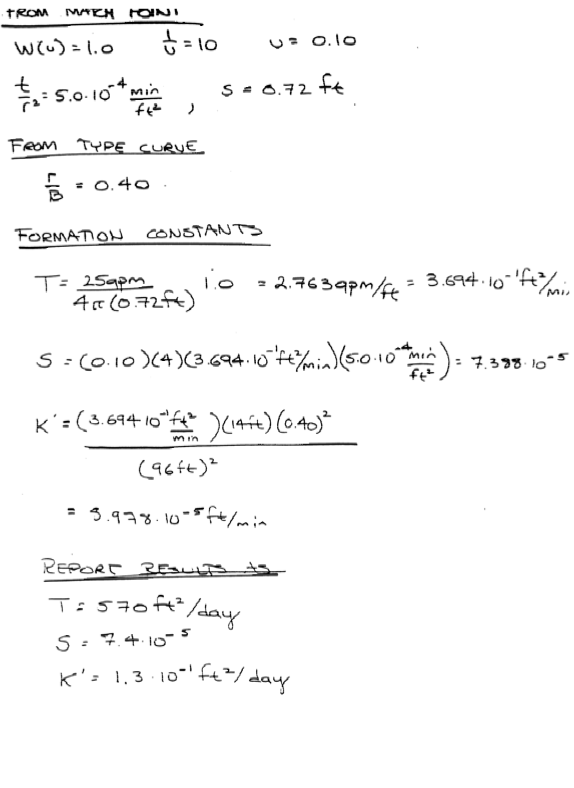 FROM MATCH POINT
W(u) = 1.0 1/u = 10 u = 0.10
t/r² = 5.0·10⁻⁴ min/ft² , s = 0.72 ft
FROM TYPE CURVE
r/B = 0.40
FORMATION CONSTANTS
T = 25gpm / 4π(0.72ft) 1.0 = 2.763gpm/ft = 3.694·10⁻¹ft²/min
S = (0.10)(4)(3.694·10⁻¹ft²/min)(5.0·10⁻⁴ min/ft²) = 7.388·10⁻⁵
K' = (3.694 10⁻¹ ft²/min)(14ft)(0.40)²
(96ft)²
= 3.978·10⁻⁵ ft/min
REPORT RESULTS AS
T = 570 ft²/day
S = 7.4·10⁻⁵
K' = 1.3·10⁻¹ ft²/day